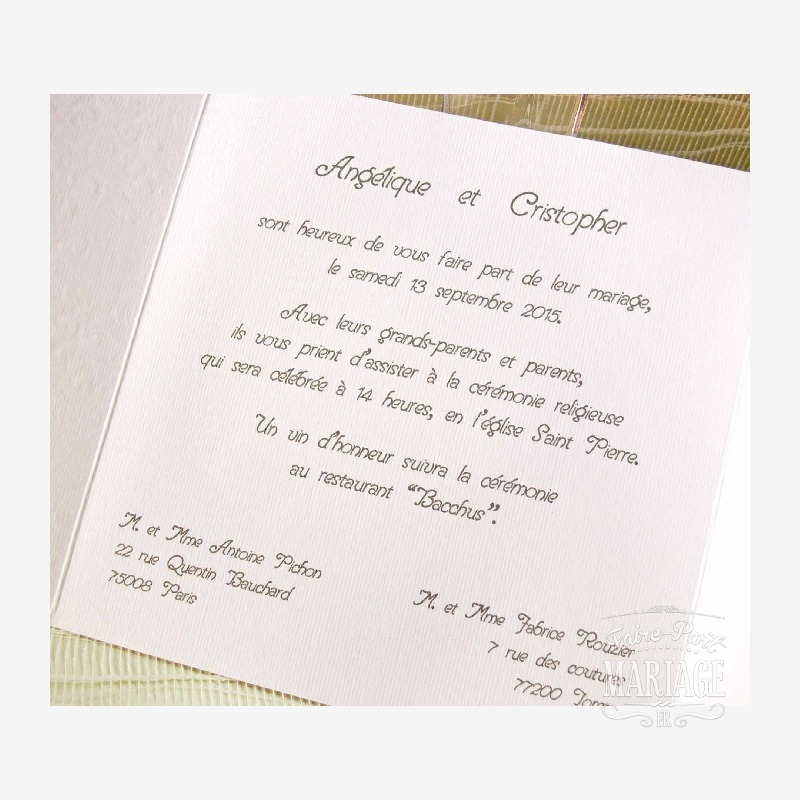 Angélique et Cristopher
sont heureux de vous faire part de leur mariage,
le samedi 13 septembre 2015.
Avec leurs grands-parents et parents,
ils vous prient d'assister à la cérémonie religieuse
qui sera célébrée à 14 heures, en l'église Saint Pierre.
Un vin d'honneur suivra la cérémonie
au restaurant “Bacchus”.
M. et Mme Antoine Pichon
22 rue Quentin Bauchard
75008 Paris
M. et Mme Fabrice Rouzier
7 rue des coutures
77200
Faire-Part
MARIAGE
FR